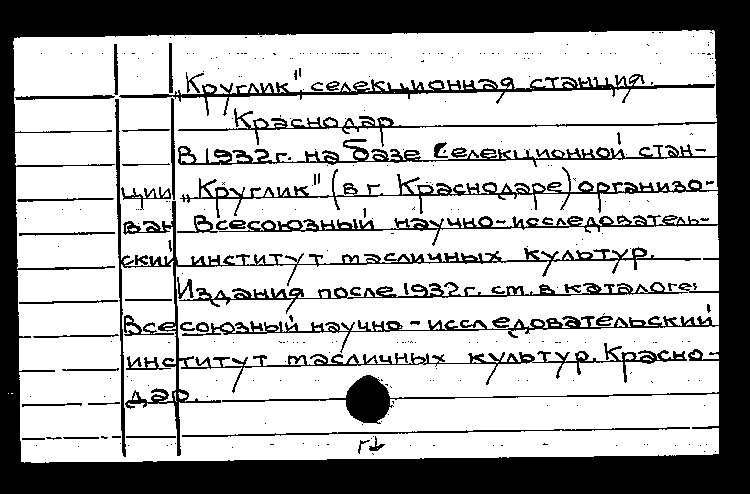 „Круглик", селекционная станция.
Краснодар
В 1932г. на базе селекционной стан-
ции „Круглик" (в г. Краснодаре) организо-
ван Всесоюзный научно-исследователь-
ский институт масличных культур.
Издания после 1932г. см. в каталоге:
Всесоюзный научно-исследовательский
институт масличных культур. Красно-
дар.